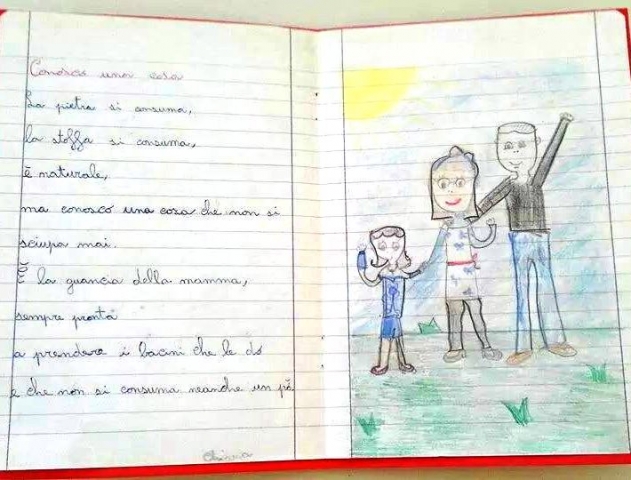 Conosco una cosa
La pietra si consuma,
la stoffa si consuma,
è naturale,
ma conosco una cosa che non si
sciupa mai.
È la guancia della mamma,
sempre pronta
a prendere i bacini che le do
e che non si consuma neanche un pò